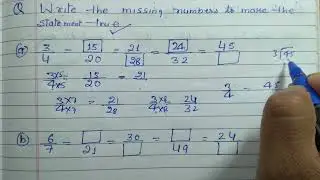 Q Write the missing numbers to make the
statement true
(a) 3/4 = 15/20 = 21/28 = 24/32 = 45/
3×5/4×5 = 15/20 = 21
3×7/4×7 = 21/28 3×8/4×8 = 24/32 3/4 = 45
3 45
(b) 6/7 = /21 = 30/ = /49 = 24/